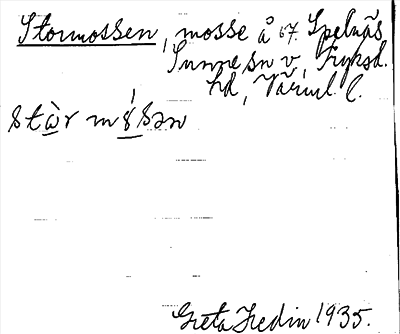 Stormossen, mosse å 67. Spelnäs,
Sunne sn v, Fryksd.
hd, Värml. l.
stὼr mɤ́sən
Greta Hedin 1935.